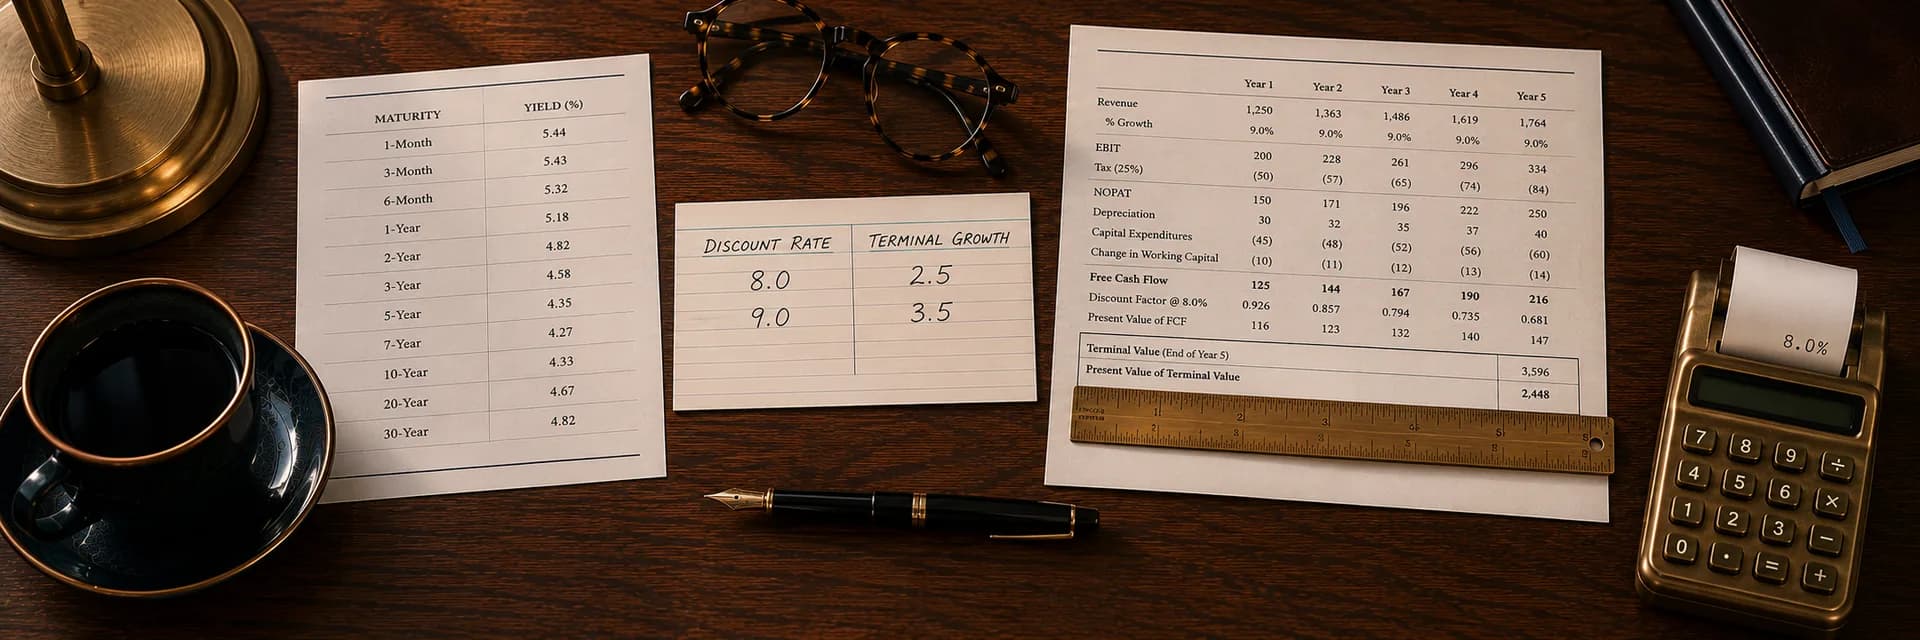 MATURITY YIELD (%)
1-Month 5.44
3-Month 5.43
6-Month 5.32
1-Year 5.18
2-Year 4.82
3-Year 4.58
5-Year 4.35
7-Year 4.27
10-Year 4.33
20-Year 4.67
30-Year 4.82
DISCOUNT RATE TERMINAL GROWTH
8.0 2.5
9.0 3.5
Year 1 Year 2 Year 3 Year 4 Year 5
Revenue 1,250 1,363 1,486 1,619 1,764
% Growth 9.0% 9.0% 9.0% 9.0% 9.0%
EBIT 200 228 261 296 334
Tax (25%) (50) (57) (65) (74) (84)
NOPAT 150 171 196 222 250
Depreciation 30 32 35 37 40
Capital Expenditures (45) (48) (52) (56) (60)
Change in Working Capital (10) (11) (12) (13) (14)
Free Cash Flow 125 144 167 190 216
Discount Factor @ 8.0% 0.926 0.857 0.794 0.735 0.681
Present Value of FCF 116 123 132 140 147
Terminal Value (End of Year 5) 3,596
Present Value of Terminal Value 2,448
8.0%
7 8 9 ÷
4 5 6 ×
1 2 3 −
0 · = +